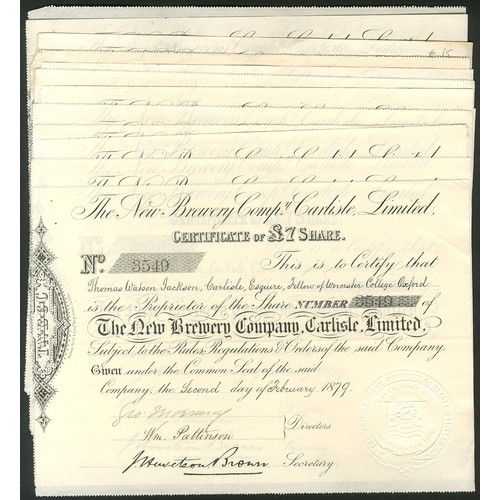 The New Brewery Comp.y Carlisle, Limited.
CERTIFICATE OF £7 SHARE.
No. 3549 This is to Certify that
Thomas Watson Jackson, Carlisle, Esquire, Fellow of Worcester College Oxford
is the Proprietor of the Share NUMBER 3549 of
The New Brewery Company, Carlisle, Limited,
Subject to the Rules, Regulations & Orders of the said Company.
Given under the Common Seal of the said
Company, the Second day of February 1879.
Wm. Pattinson
Directors
Secretary.